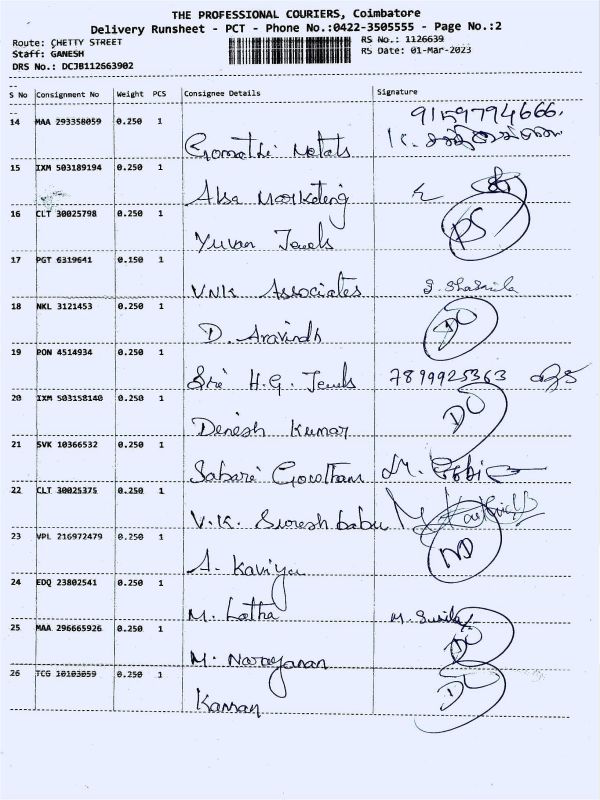 THE PROFESSIONAL COURIERS, Coimbatore
Delivery Runsheet - PCT - Phone No.:0422-3505555 - Page No.:2
Route: CHETTY STREET
RS No.: 1126639
Staff: GANESH
RS Date: 01-Mar-2023
DRS No.: DCJB112663902
S No Consignment No Weight PCS Consignee Details Signature
14 MAA 293358059 0.250 1 Gomathi Metals 9159794666.
15 IXM 503189194 0.250 1 Alsa Marketing
16 CLT 30025798 0.250 1 Yuvan Jewels
17 PGT 6319641 0.150 1 VNK Associates
18 NKL 3121453 0.250 1 D. Aravindh DO
19 PON 4514934 0.250 1 Sri H.G. Jewels 7899925363
20 IXM 503158140 0.250 1 Denesh Kumar DO
21 SVK 10366532 0.250 1 Sabari Gowtham
22 CLT 30025375 0.250 1 V.K. Suresh babu
23 VPL 216972479 0.250 1 A. Kaviya ND
24 EDQ 23802541 0.250 1 M. Latha M. Susila
25 MAA 296665926 0.250 1 M. Narayanan DO
26 TCG 10103059 0.250 1 Kannan DO